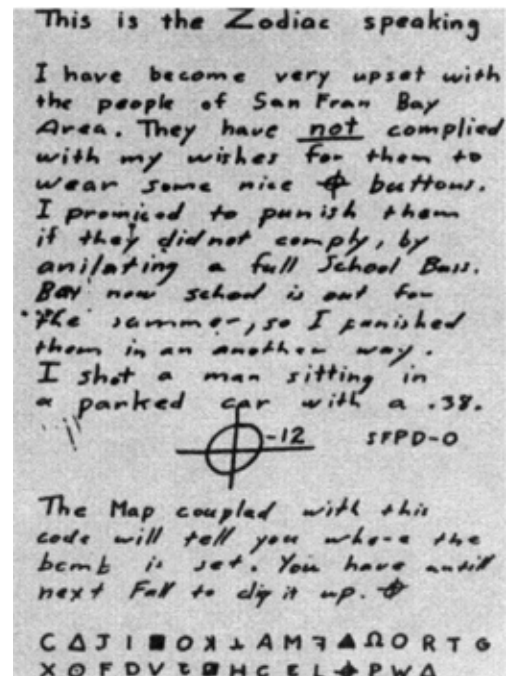 This is the Zodiac speaking
I have become very upset with
the people of San Fran Bay
Area. They have not complied
with my wishes for them to
wear some nice ⌖ buttons.
I promiced to punish them
if they did not comply, by
anilating a full School Buss.
But now school is out for
the summer, so I punished
them in an another way.
I shot a man sitting in
a parked car with a .38.
⌖-12 SFPD-0
The Map coupled with this
code will tell you where the
bomb is set. You have untill
next Fall to dig it up. ⌖
C Δ J I ■ O ꓘ ⊥ A M ꟻ ▲ Ω O R T G
X ⊙ F D V ⊡ H C E L ⌖ P W Δ